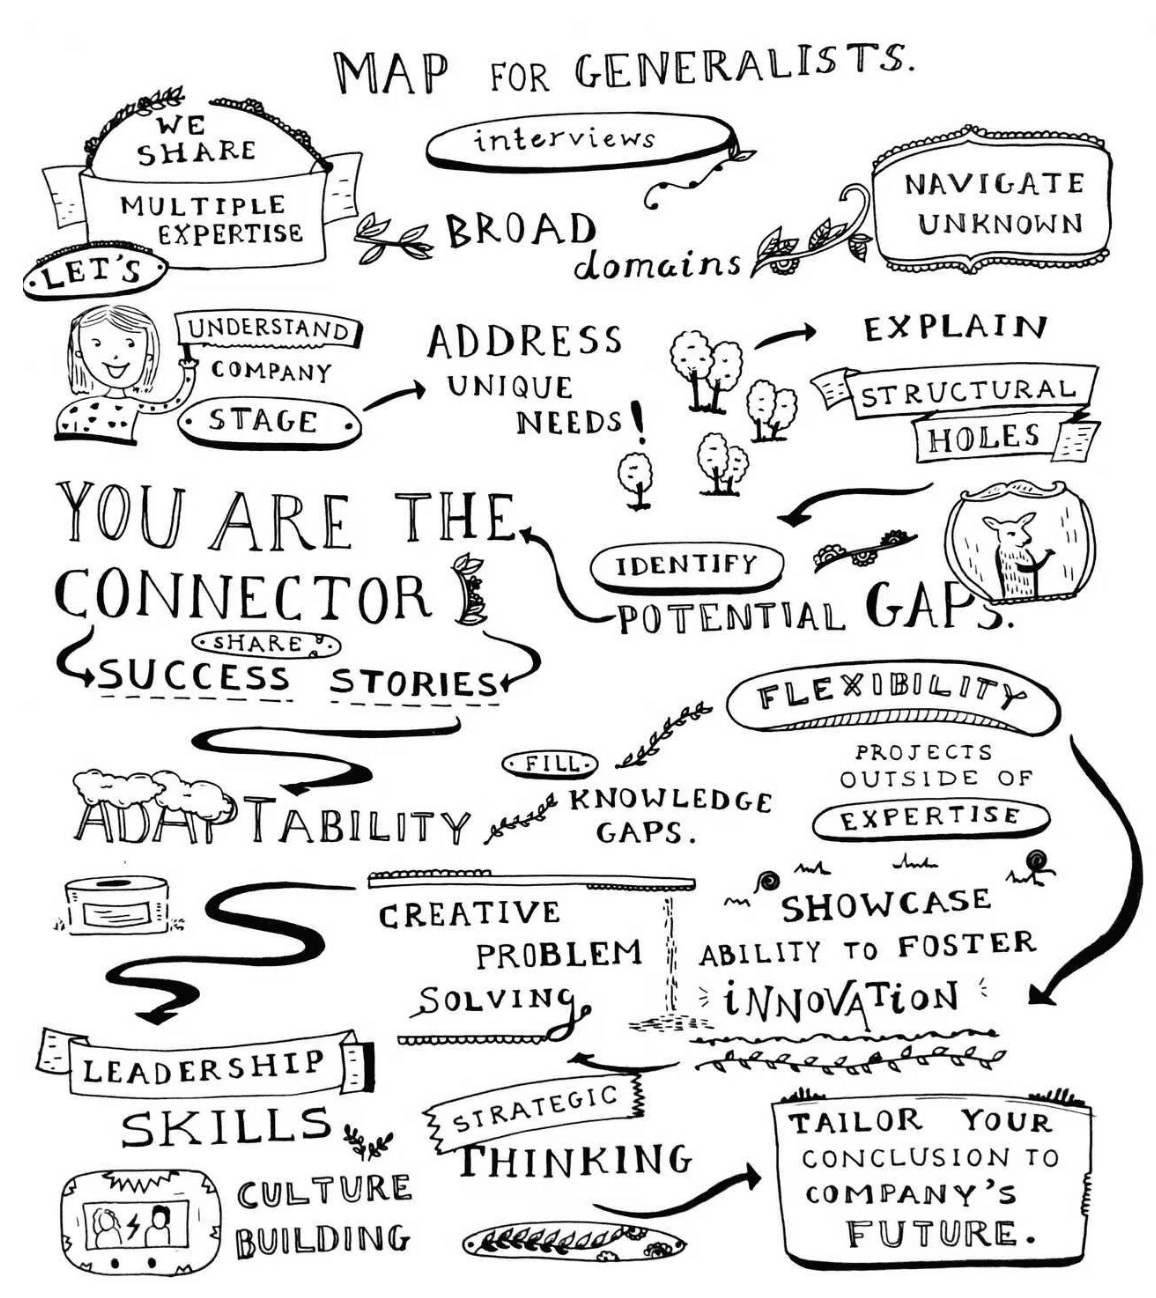 MAP FOR GENERALISTS.
interviews
WE
SHARE
MULTIPLE
EXPERTISE
LET'S
BROAD
domains
NAVIGATE
UNKNOWN
UNDERSTAND
COMPANY
STAGE
ADDRESS
UNIQUE
NEEDS!
EXPLAIN
STRUCTURAL
HOLES
YOU ARE THE
CONNECTOR
IDENTIFY
POTENTIAL GAPS.
SHARE
SUCCESS STORIES
FLEXIBILITY
PROJECTS
OUTSIDE OF
EXPERTISE
ADAPTABILITY
FILL
KNOWLEDGE
GAPS.
CREATIVE
PROBLEM
SOLVING
SHOWCASE
ABILITY TO FOSTER
iNNOVATiON
LEADERSHIP
SKILLS
CULTURE
BUILDING
STRATEGIC
THINKING
TAILOR YOUR
CONCLUSION TO
COMPANY'S
FUTURE.